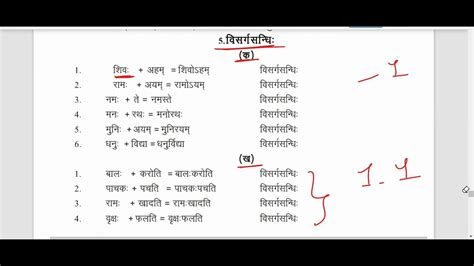 5.विसर्गसन्धिः
(क)
1. शिवः + अहम् = शिवोऽहम् विसर्गसन्धिः
2. रामः + अयम् = रामोऽयम् विसर्गसन्धिः
3. नमः + ते = नमस्ते विसर्गसन्धिः
4. मनः + रथः = मनोरथः विसर्गसन्धिः
5. मुनिः + अयम् = मुनिरयम् विसर्गसन्धिः
6. धनुः + विद्या = धनुर्विद्या विसर्गसन्धिः
(ख)
1. बालः + करोति = बालःकरोति विसर्गसन्धिः
2. पाचकः + पचति = पाचकःपचति विसर्गसन्धिः
3. रामः + खादति = रामःखादति विसर्गसन्धिः
4. वृक्षः + फलति = वृक्षःफलति विसर्गसन्धिः
- 1
1.1